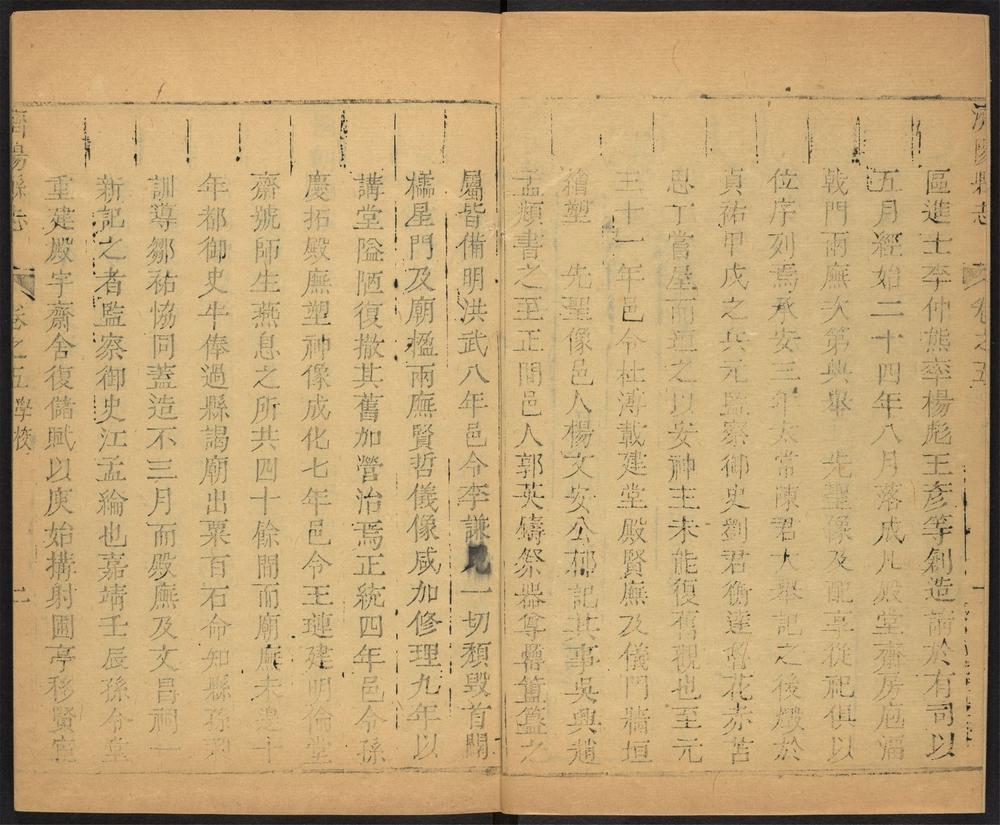 濟陽縣志
卷之五
一
區進士李仲熊率楊彪王彥等創造請於有司以
五月經始二十四年八月落成凡殿堂齋房庖湢
戟門兩廡次第典舉 先聖像及配享從祀俱以
位序列焉承安三年太常陳君大舉記之後燬於
貞祐甲戌之兵元監察御史劉君衡達魯花赤苫
思丁嘗屋而垣之以安神主未能復舊觀也至元
三十一年邑令杜溥載建堂殿賢廡及儀門牆垣
繪塑 先聖像邑人楊文安公郝記其事吳興趙
孟頫書之至正間邑人郭英鑄祭器尊罍簠簋之
屬皆備明洪武八年邑令李謙見一切頹毀首闢
櫺星門及廟楹兩廡賢哲儀像咸加修理九年以
講堂隘陋復撤其舊加營治焉正統四年邑令孫
慶拓殿廡塑神像成化七年邑令王璉建明倫堂
齋號師生燕息之所共四十餘間而廟廡未
十
年都御史牛俸過縣謁廟出粟百石命知縣孫
訓導鄒祐恊同蓋造不三月而殿廡及文昌祠一
新記之者監察御史江孟綸也嘉靖壬辰孫令堂
重建殿宇齋舍復儲賦以庾始搆射圃亭移賢宦
濟陽縣志
卷之五 學校
二